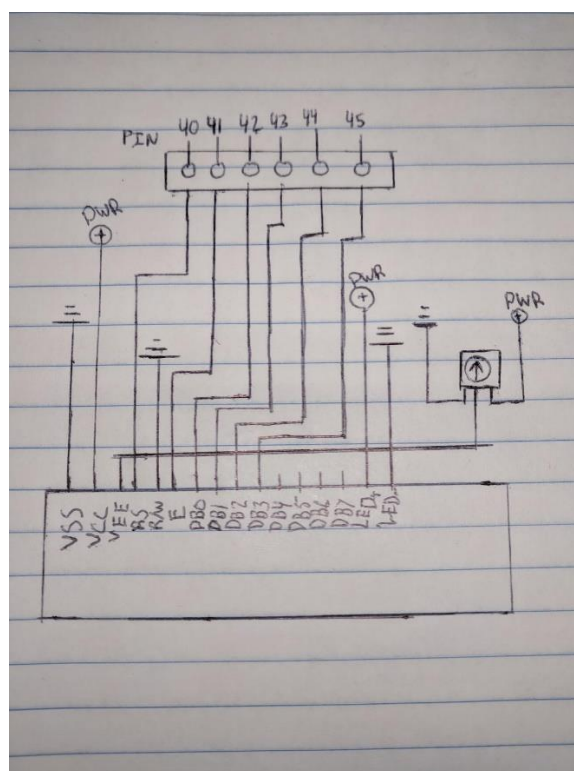 PIN 40 41 42 43 44 45
PWR
PWR
PWR
VSS
VCC
VEE
RS
R/W
E
DB0
DB1
DB2
DB3
DB4
DB5
DB6
DB7
LED+
LED-